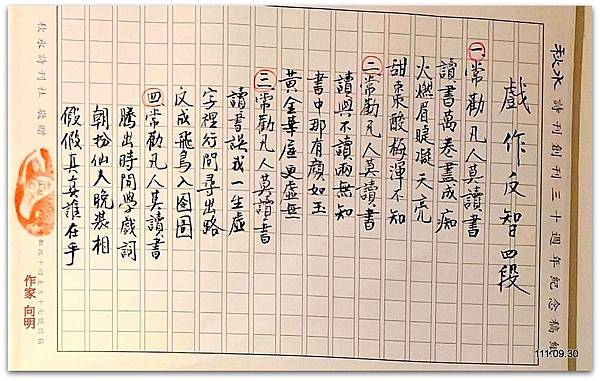 秋水詩刊創刊三十週年紀念稿紙
戲作反智四段
一、常勸凡人莫讀書
讀書萬卷盡成痴
火燃眉睫凝天亮
甜棗酸梅渾不知
二常勸凡人莫讀書
讀與不讀兩無知
書中那有顏如玉
黃金華屋更虛無
三常勸凡人莫讀書
讀書誤我一生虛
字裡行間尋出路
文成飛鳥入囹圄
四、常勸凡人莫讀書
騰出時間學戲詞
朝扮仙人晚裝相
假假真真誰在乎
秋水詩刊社 敬贈
作家 向明
111.09.30